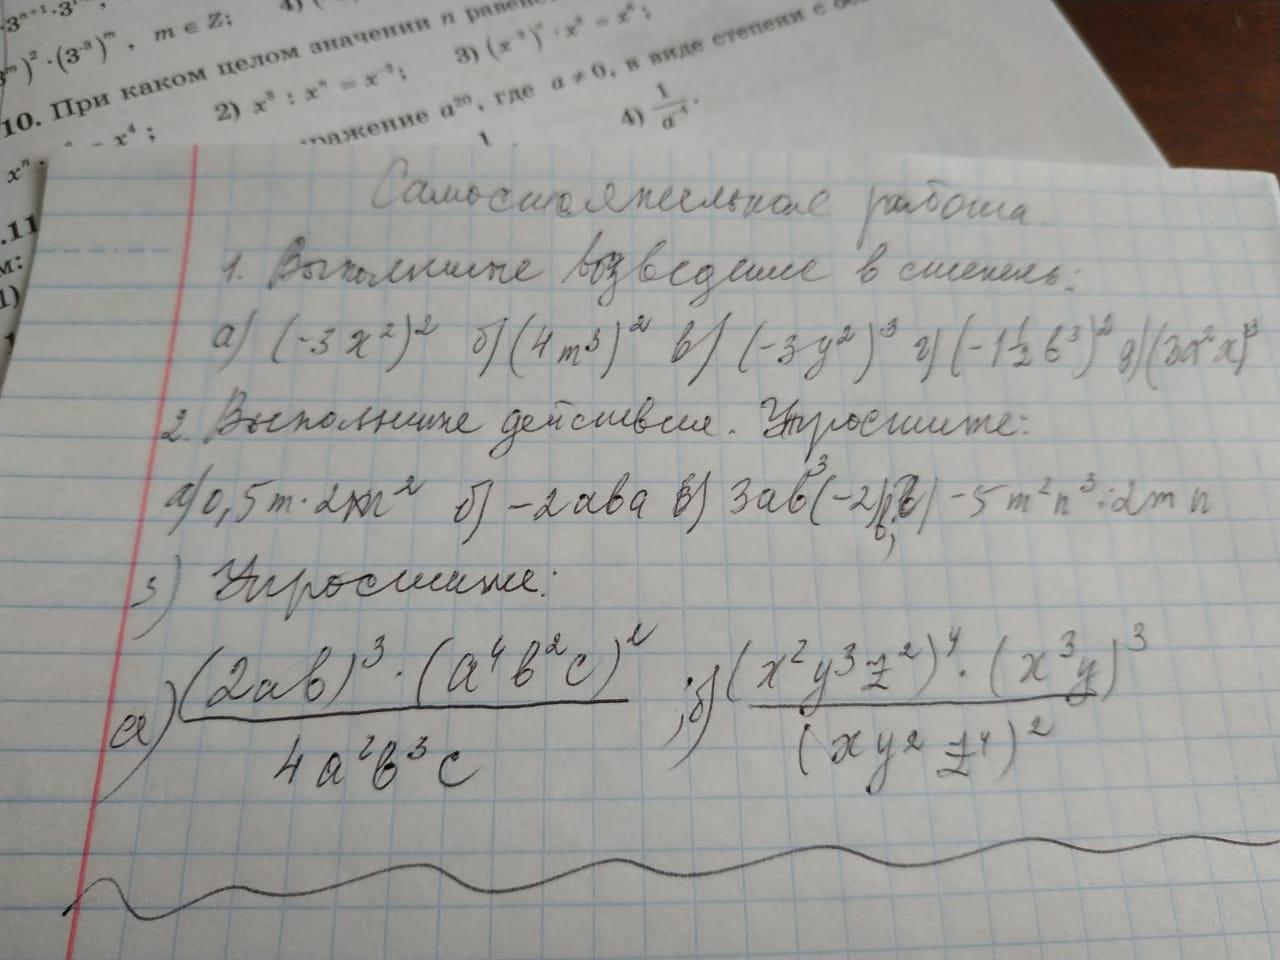 ·3ⁿ⁺¹·3
4) (
ᵐ)² · (3⁻³)ᵐ, m ∈ Z;
10. При каком целом значении n
2) x³ : xⁿ = x⁻⁹;
3) (x⁻³)ⁿ · x³ = x⁶;
xⁿ · = x⁴;
ражение a²⁰, где a ≠ 0, в виде степени с
1
4) 1/a⁻⁴.
.11
м:
1)
Самостоятельная работа.
1. Выполните возведение в степень:
а) (-3x²)² б) (4m³)² в) (-3y²)³ г) (-1 1/2 b³)² д) (3a²x)³
2. Выполните действия. Упростите:
а) 0,5m · 2m² б) -2aba в) 3ab³(-2)b; г) -5m²n³ : 2mn
3) Упростите:
а) (2ab)³ · (a⁴b²c)² / 4a²b³c ; б) (x²y³z²)⁴ · (x³y)³ / (xy²z⁴)²